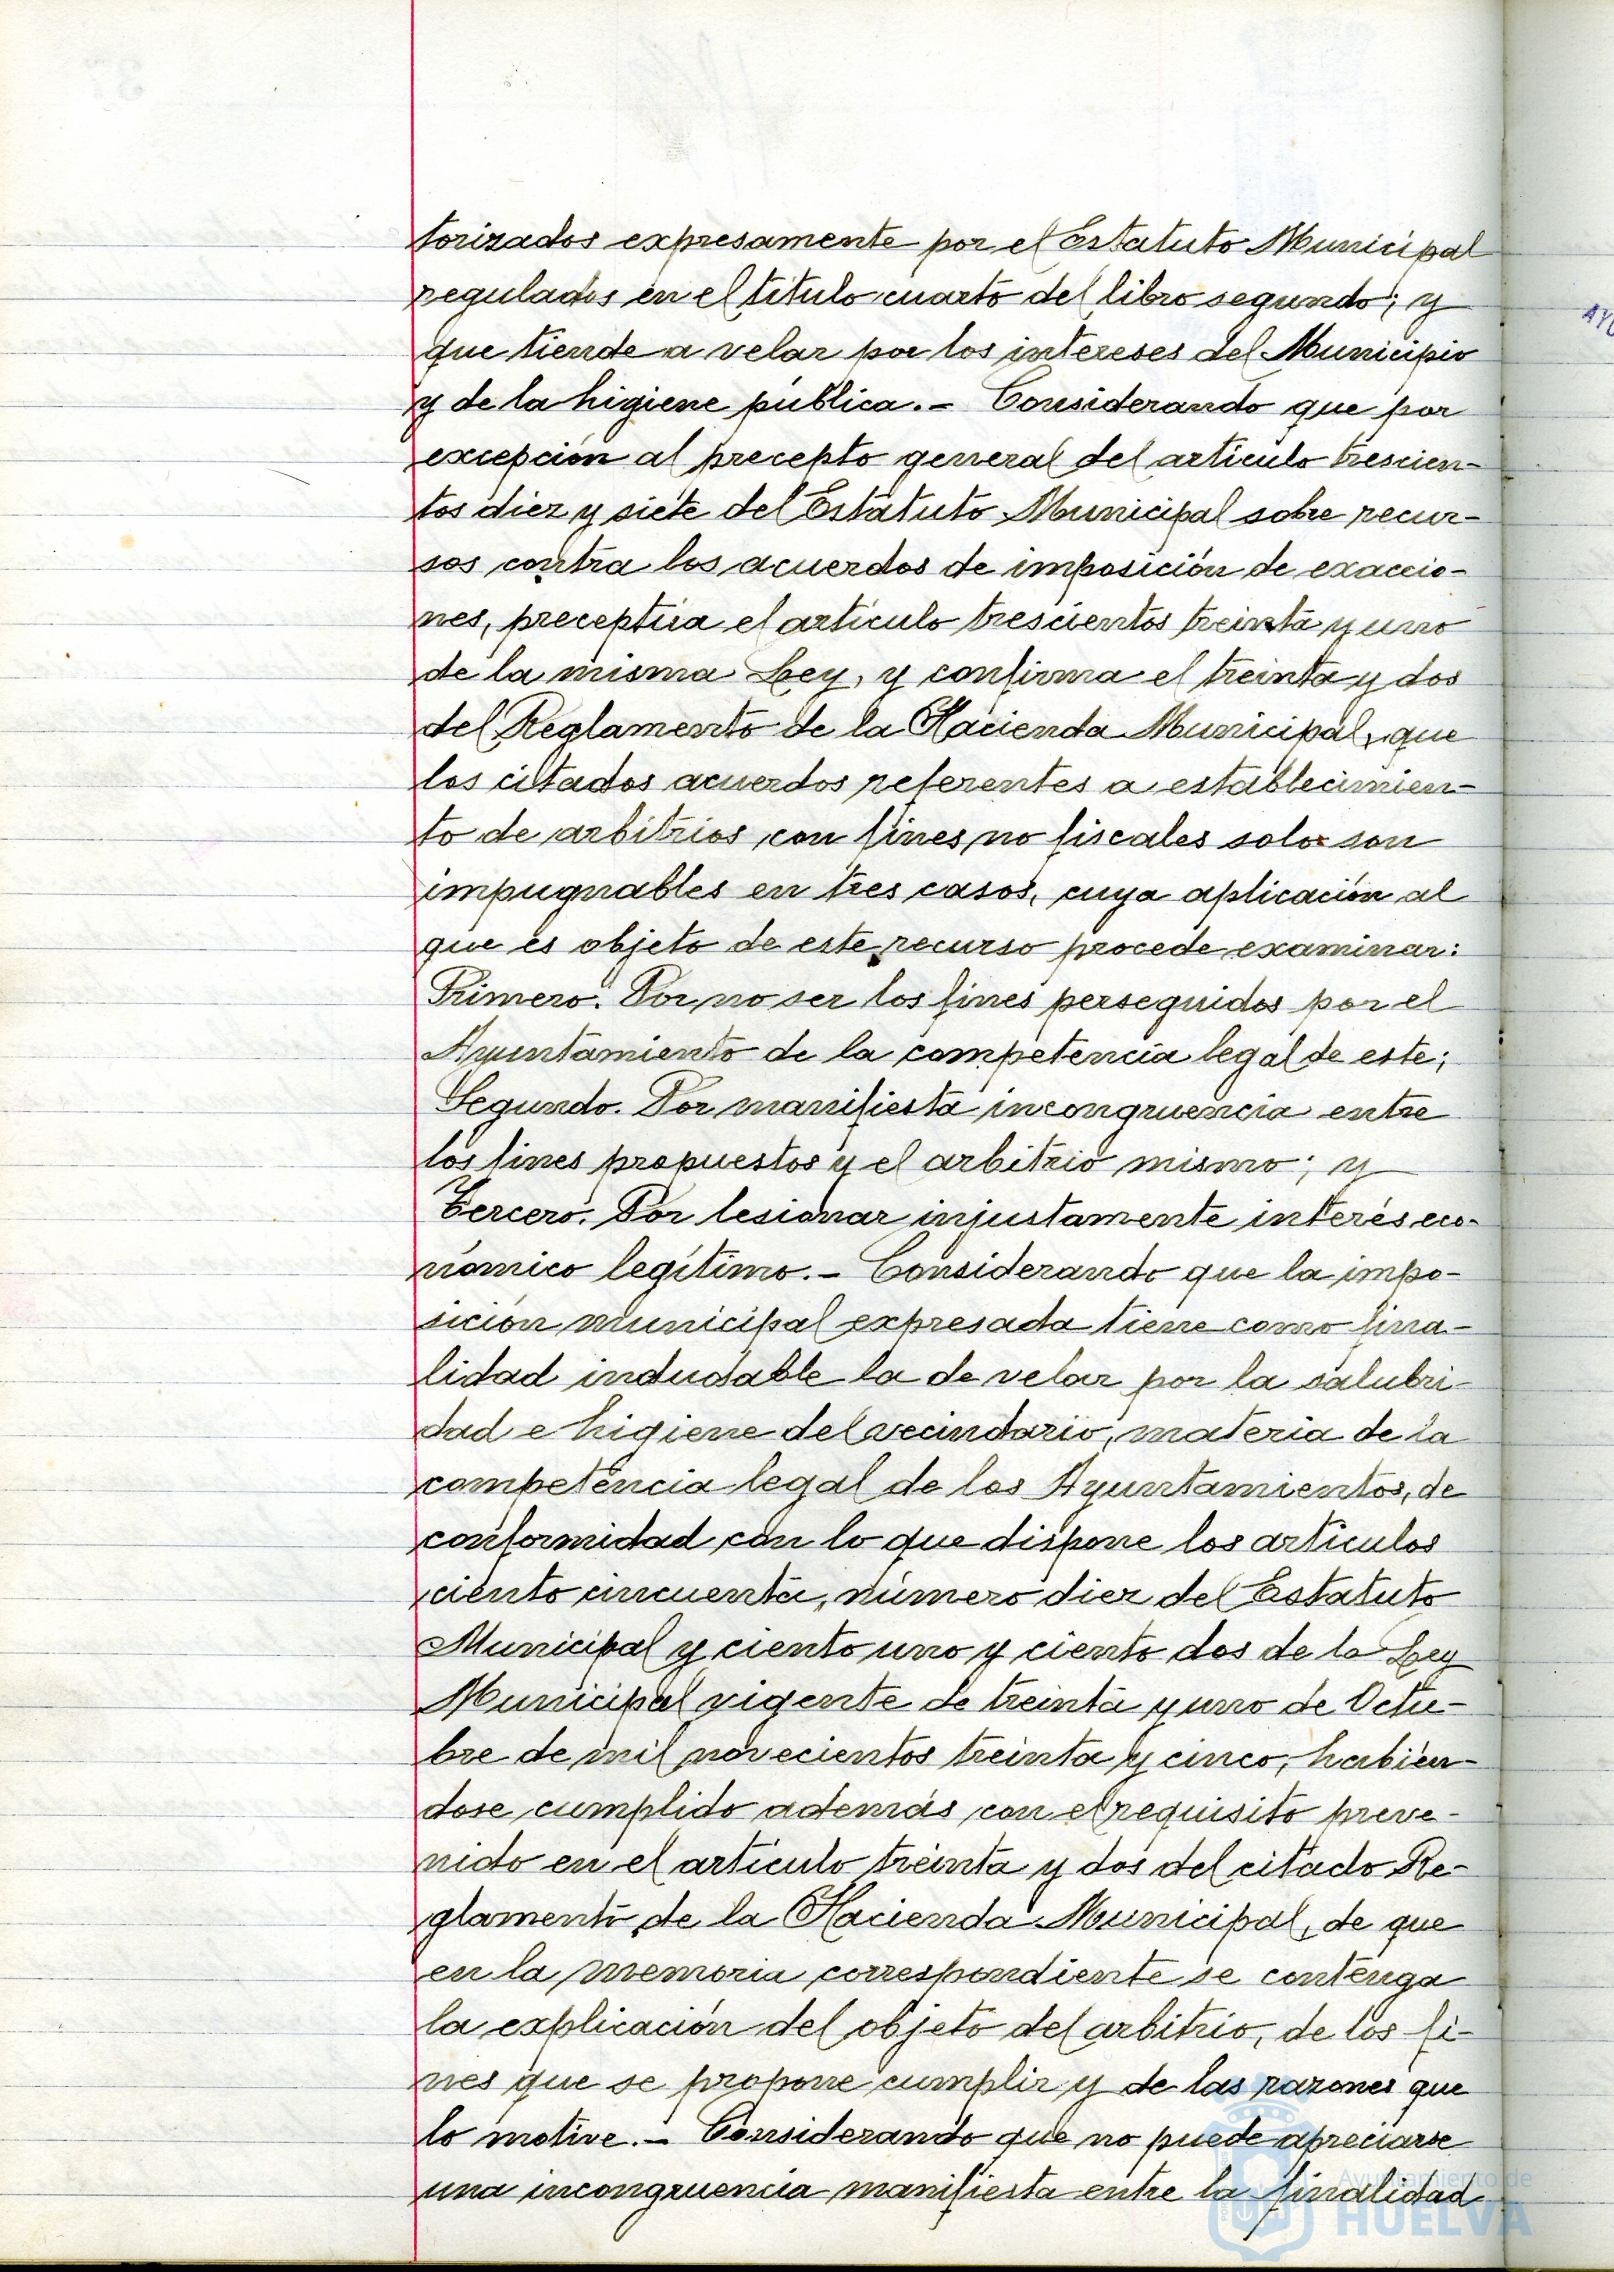 torizados expresamente por el Estatuto Municipal
regulados en el título cuarto del libro segundo; y
que tiende a velar por los intereses del Municipio
y de la higiene pública.- Considerando que por
excepción al precepto general del artículo trescien-
tos diez y siete del Estatuto Municipal sobre recur-
sos contra los acuerdos de imposición de exaccio-
nes, preceptúa el artículo trescientos treinta y uno
de la misma Ley, y confirma el treinta y dos
del Reglamento de la Hacienda Municipal, que
los citados acuerdos referentes a establecimien-
to de arbitrios con fines no fiscales solo son
impugnables en tres casos, cuya aplicación al
que es objeto de este recurso procede examinar:
Primero. Por no ser los fines perseguidos por el
Ayuntamiento de la competencia legal de este;
Segundo. Por manifiesta incongruencia entre
los fines propuestos y el arbitrio mismo; y
Tercero. Por lesionar injustamente interés eco-
nómico legítimo.- Considerando que la impo-
sición municipal expresada tiene como fina-
lidad indudable la de velar por la salubri-
dad e higiene del vecindario, materia de la
competencia legal de los Ayuntamientos, de
conformidad con lo que dispone los artículos
ciento cincuenta, número diez del Estatuto
Municipal y ciento uno y ciento dos de la Ley
Municipal vigente de treinta y uno de Octu-
bre de mil novecientos treinta y cinco, habién-
dose cumplido además con el requisito preve-
nido en el artículo treinta y dos del citado Re-
glamento de la Hacienda Municipal, de que
en la memoria correspondiente se contenga
la explicación del objeto del arbitrio, de los fi-
nes que se propone cumplir y de las razones que
lo motive.- Considerando que no puede apreciarse
una incongruencia manifiesta entre la finalidad
Ayuntamiento de
HUELVA